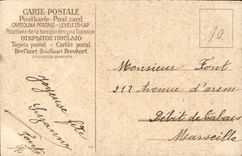 CARTE POSTALE
Postkarte-Post card
CARTOLINA POSTALE - LEVELEZŐ-LAP
ОТКРЫТОЕ ПИСЬМО
Tarjeta postal - Cartão postal
Brefkort Briefkaart Brevkort
10
Joyeuse fête
Suzanne
Font
Monsieur Font
212 Avenue d'arenc
Débit de tabac
Marseille